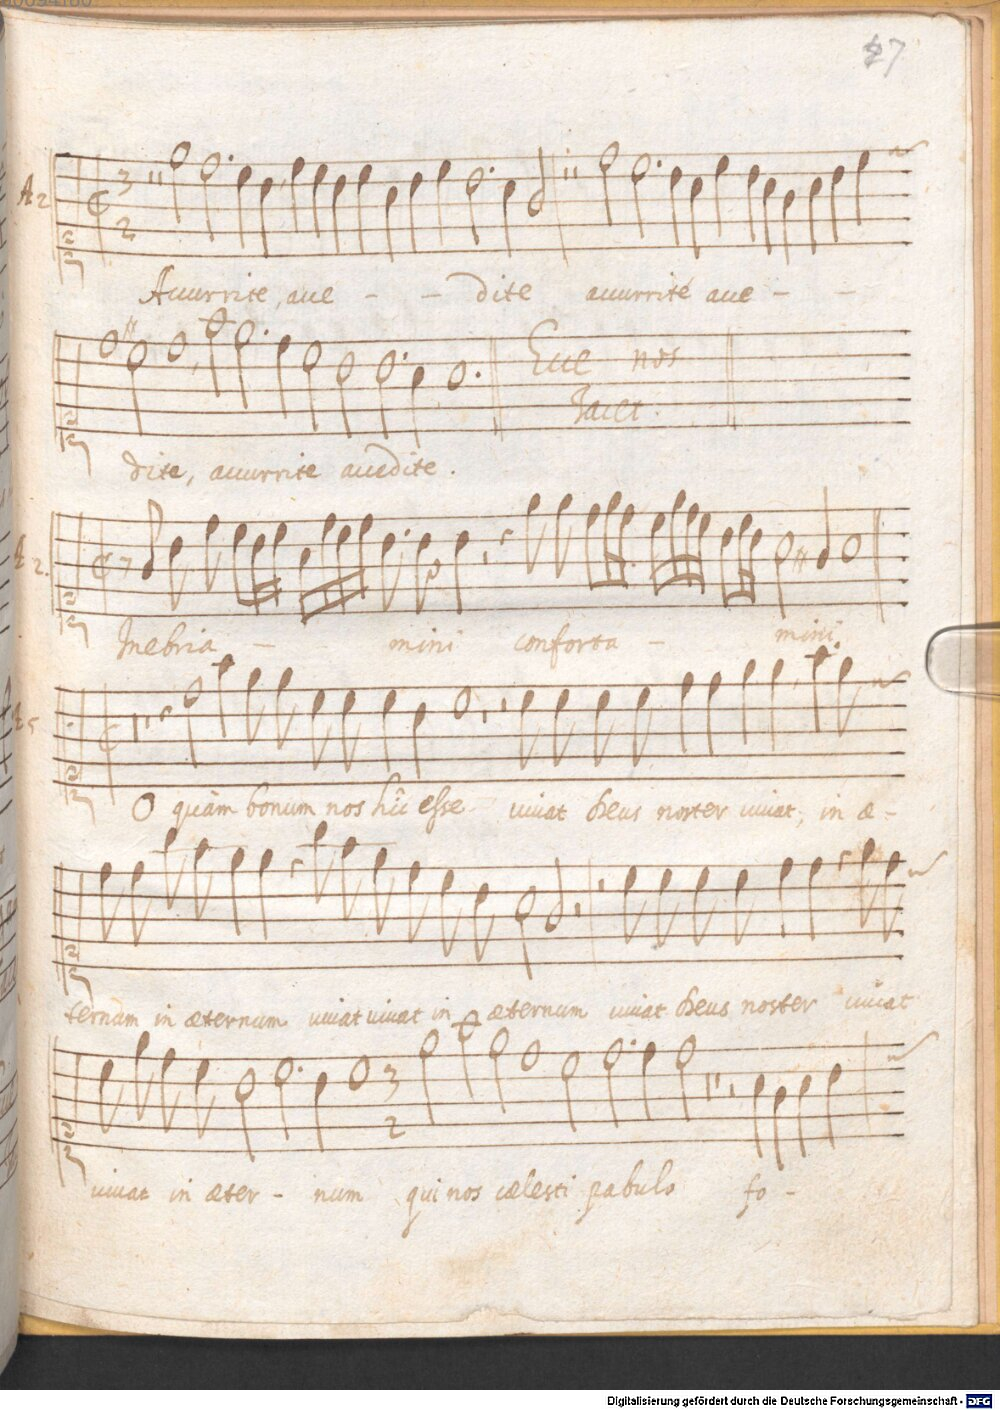 27
A 2
3
2
Accurrite, acce - - dite accurrite acce - -
Ecce nos
Tacet.
dite, accurrite accedite.
A 2.
Inebria - - mini conforta - mini
A 5
O quàm bonum nos hîc esse vivat Deus noster vivat, in æ-
ternum in æternum vivat vivat in æternum vivat Deus noster vivat
3
2
vivat in æter - num qui nos cælesti pabulo fo -
Digitalisierung gefördert durch die Deutsche Forschungsgemeinschaft - DFG